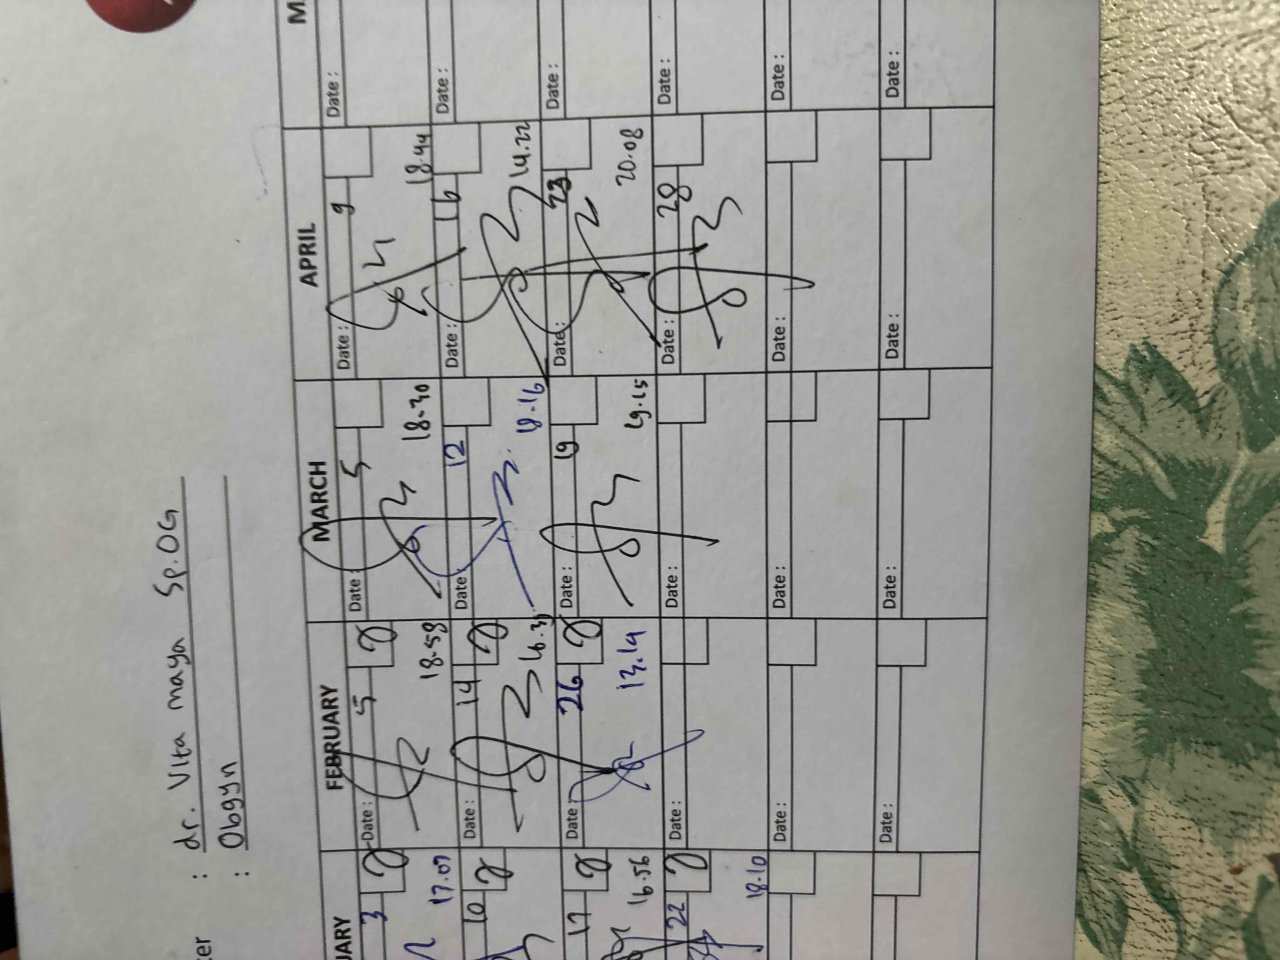 ter : dr. Vita maya Sp.OG
: Obgyn
UARY FEBRUARY MARCH APRIL M
3 Date : 5 Date : 5 Date : 9 Date :
17.07 18.58 18.30 18.44
10 Date : 14 Date : 12 Date : 16 Date :
18.16 14.22
17 Date : 26 Date : 19 Date : 23 Date :
16.56 13.19 19.15 20.08
22 Date : Date : Date : 28 Date :
18.10
Date : Date : Date : Date :
Date : Date : Date : Date :